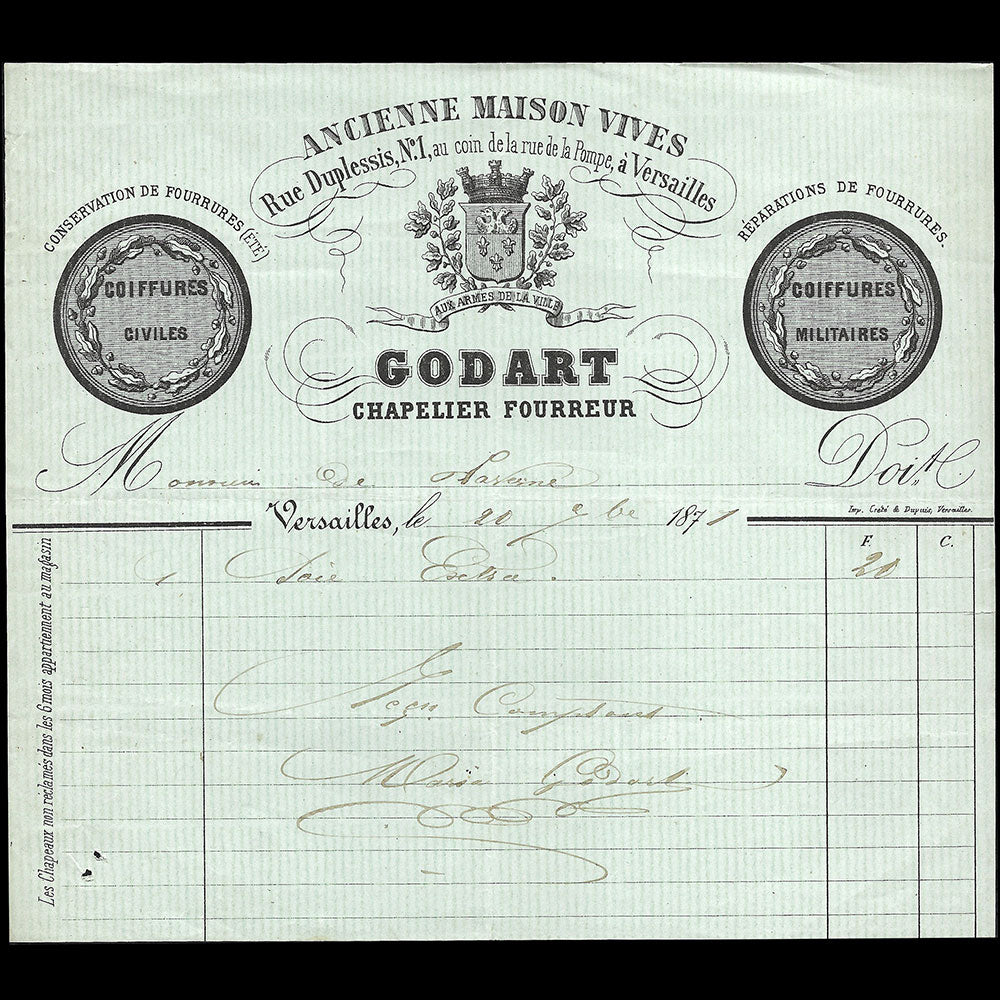 ANCIENNE MAISON VIVES
Rue Duplessis, No. 1, au coin de la rue de la Pompe, à Versailles
CONSERVATION DE FOURRURES (ÉTÉ)
RÉPARATIONS DE FOURRURES.
COIFFURES
CIVILES
COIFFURES
MILITAIRES
AUX ARMES DE LA VILLE
GODART
CHAPELIER FOURREUR
Monsieur de Doit
Versailles, le 20 9bre 1871
Imp. Creté & Dupuis, Versailles.
F. C.
1 Soie Extra. 20
Reçu Comptant
Maria Godart
Les Chapeaux non réclamés dans les 6 mois appartiennent au magasin